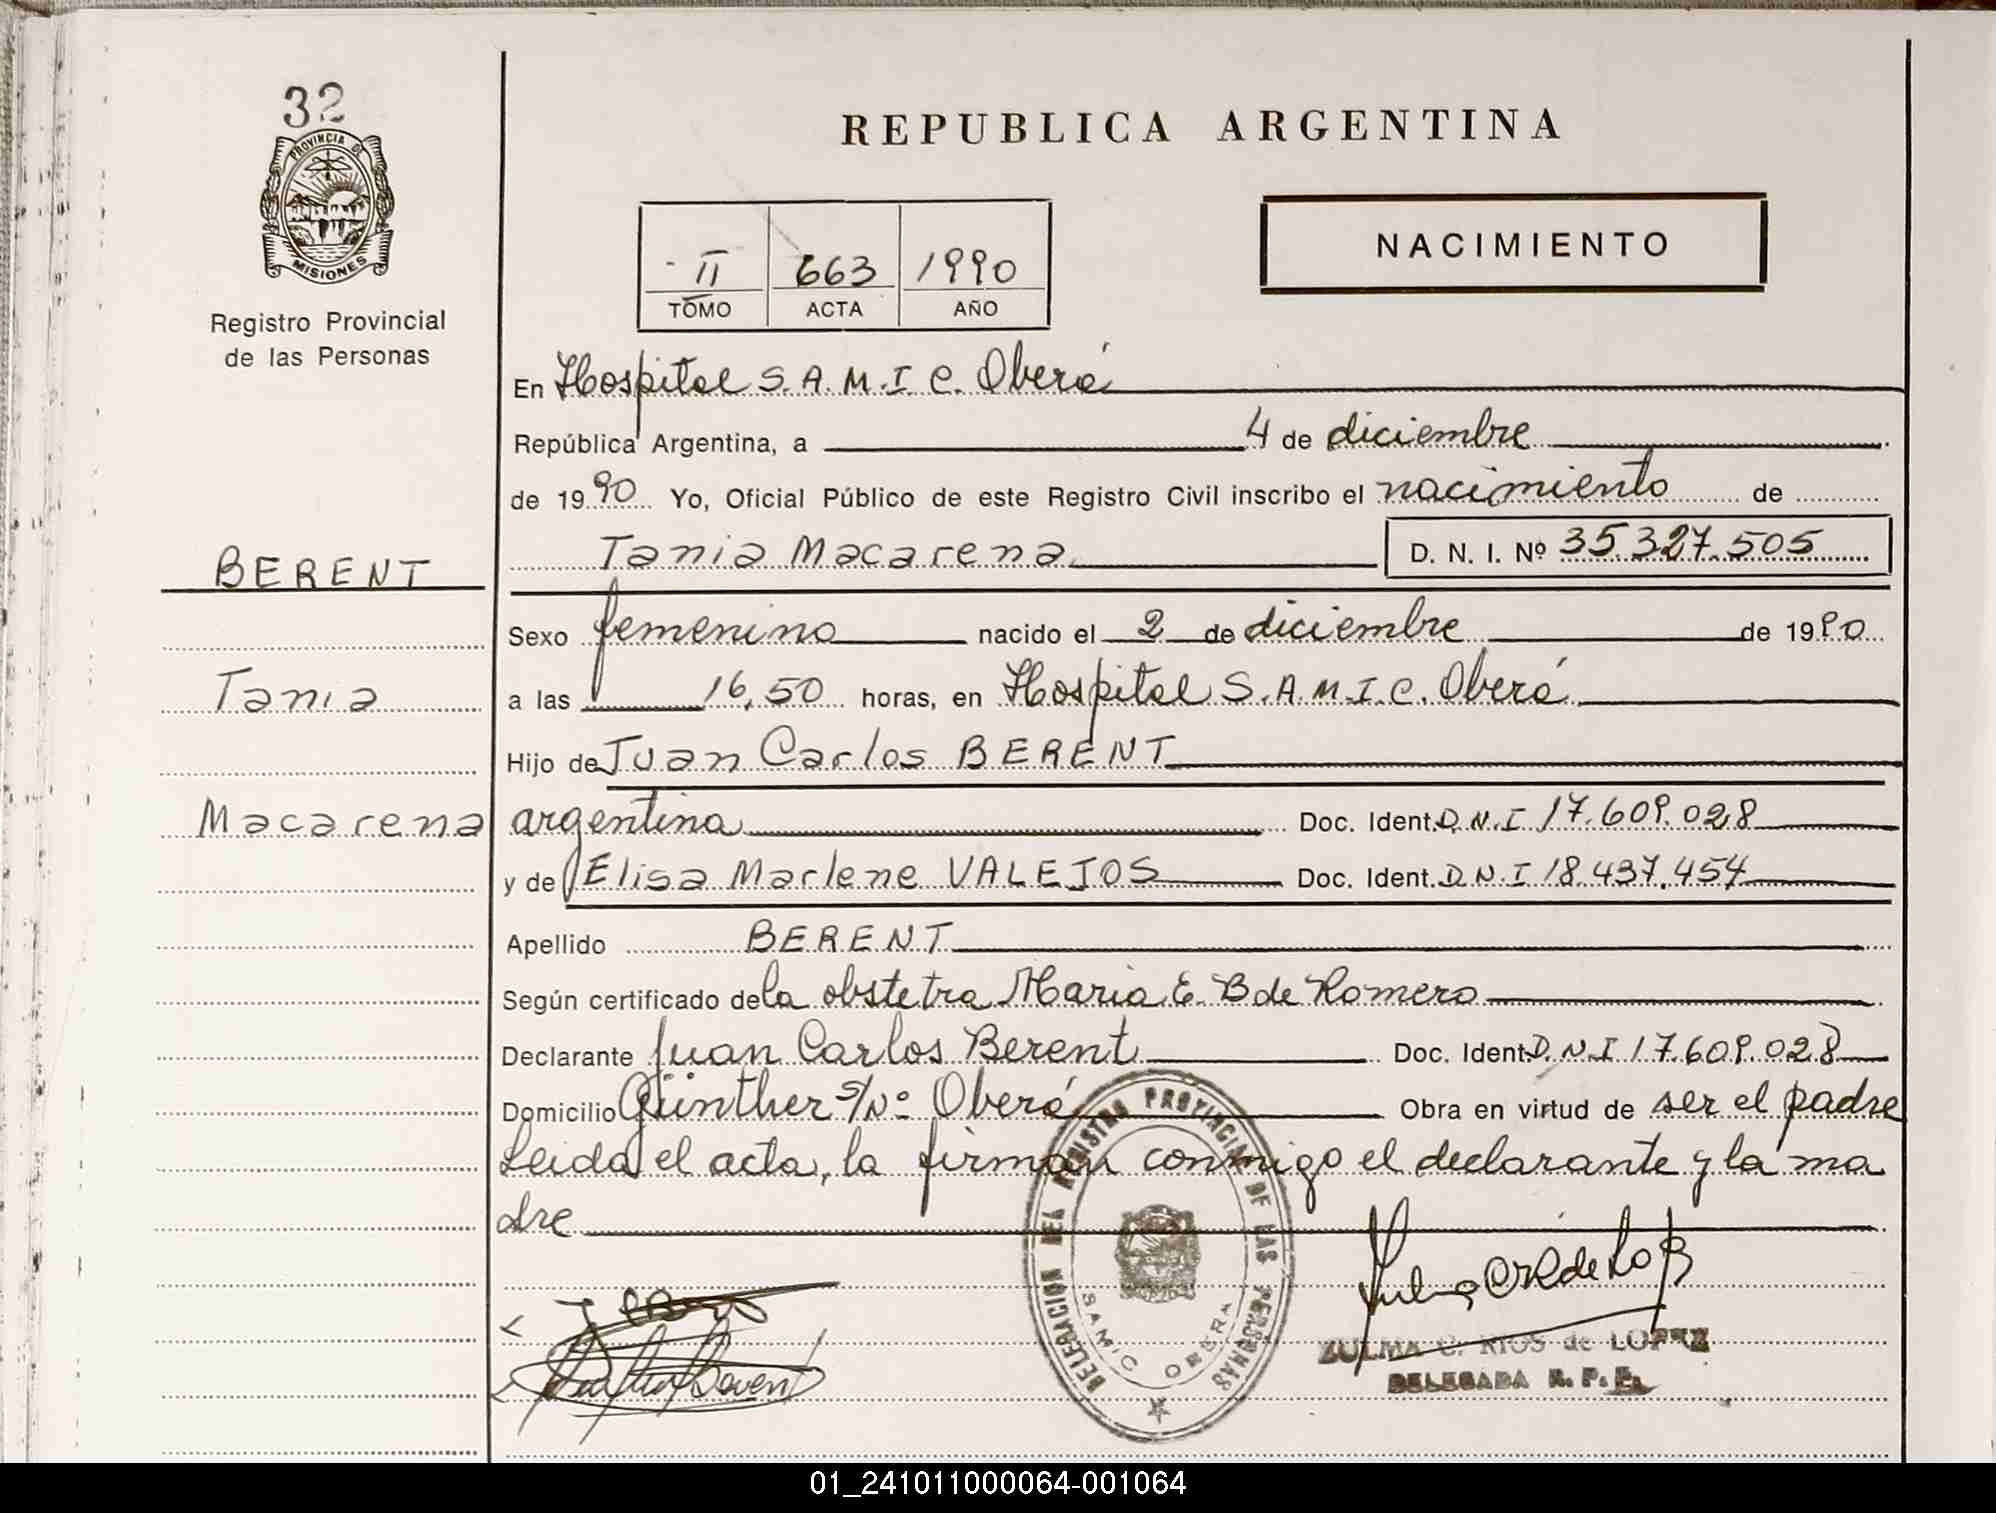 32
PROVINCIA DE
MISIONES
Registro Provincial
de las Personas
BERENT
Tania
Macarena
REPUBLICA ARGENTINA
II 663 1990
TOMO ACTA AÑO
NACIMIENTO
En Hospital S.A.M.I.C. Oberá
República Argentina, a 4 de diciembre
de 1990 Yo, Oficial Público de este Registro Civil inscribo el nacimiento de
Tania Macarena D. N. I. Nº 35.327.505
Sexo femenino nacido el 2 de diciembre de 1990
a las 16,50 horas, en Hospital S.A.M.I.C. Oberá
Hijo de Juan Carlos BERENT
argentina Doc. Ident. D.N.I 17.609.028
y de Elisa Marlene VALEJOS Doc. Ident. D.N.I 18.437.454
Apellido BERENT
Según certificado de la obstetra Maria E. B de Romero
Declarante Juan Carlos Berent Doc. Ident. D.N.I 17.609.028
Domicilio Günther s/Nº Oberá Obra en virtud de ser el padre
Leida el acta, la firman conmigo el declarante y la ma
dre
DELEGACION DEL REGISTRO PROVINCIAL DE LAS PERSONAS
SAMIC OBERA
ZULMA C. RIOS de LOPEZ
DELEGADA R. P. P.
01_241011000064-001064